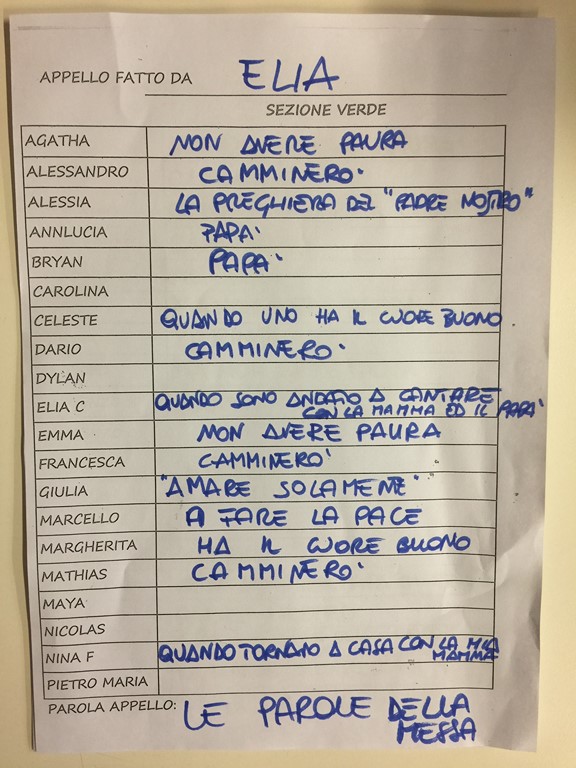 APPELLO FATTO DA ELIA
SEZIONE VERDE
AGATHA NON AVERE PAURA
ALESSANDRO CAMMINERO'
ALESSIA LA PREGHIERA DEL "PADRE NOSTRO"
ANNLUCIA PAPA'
BRYAN PAPA'
CAROLINA
CELESTE QUANDO UNO HA IL CUORE BUONO
DARIO CAMMINERO'
DYLAN
ELIA C QUANDO SONO ANDATO A CANTARE
CON LA MAMMA ED IL PAPA'
EMMA NON AVERE PAURA
FRANCESCA CAMMINERO'
GIULIA "AMARE SOLAMENTE"
MARCELLO A FARE LA PACE
MARGHERITA HA IL CUORE BUONO
MATHIAS CAMMINERO'
MAYA
NICOLAS
NINA F QUANDO TORNANO A CASA CON LA MIA
MAMMA
PIETRO MARIA
PAROLA APPELLO: LE PAROLE DELLA
MESSA